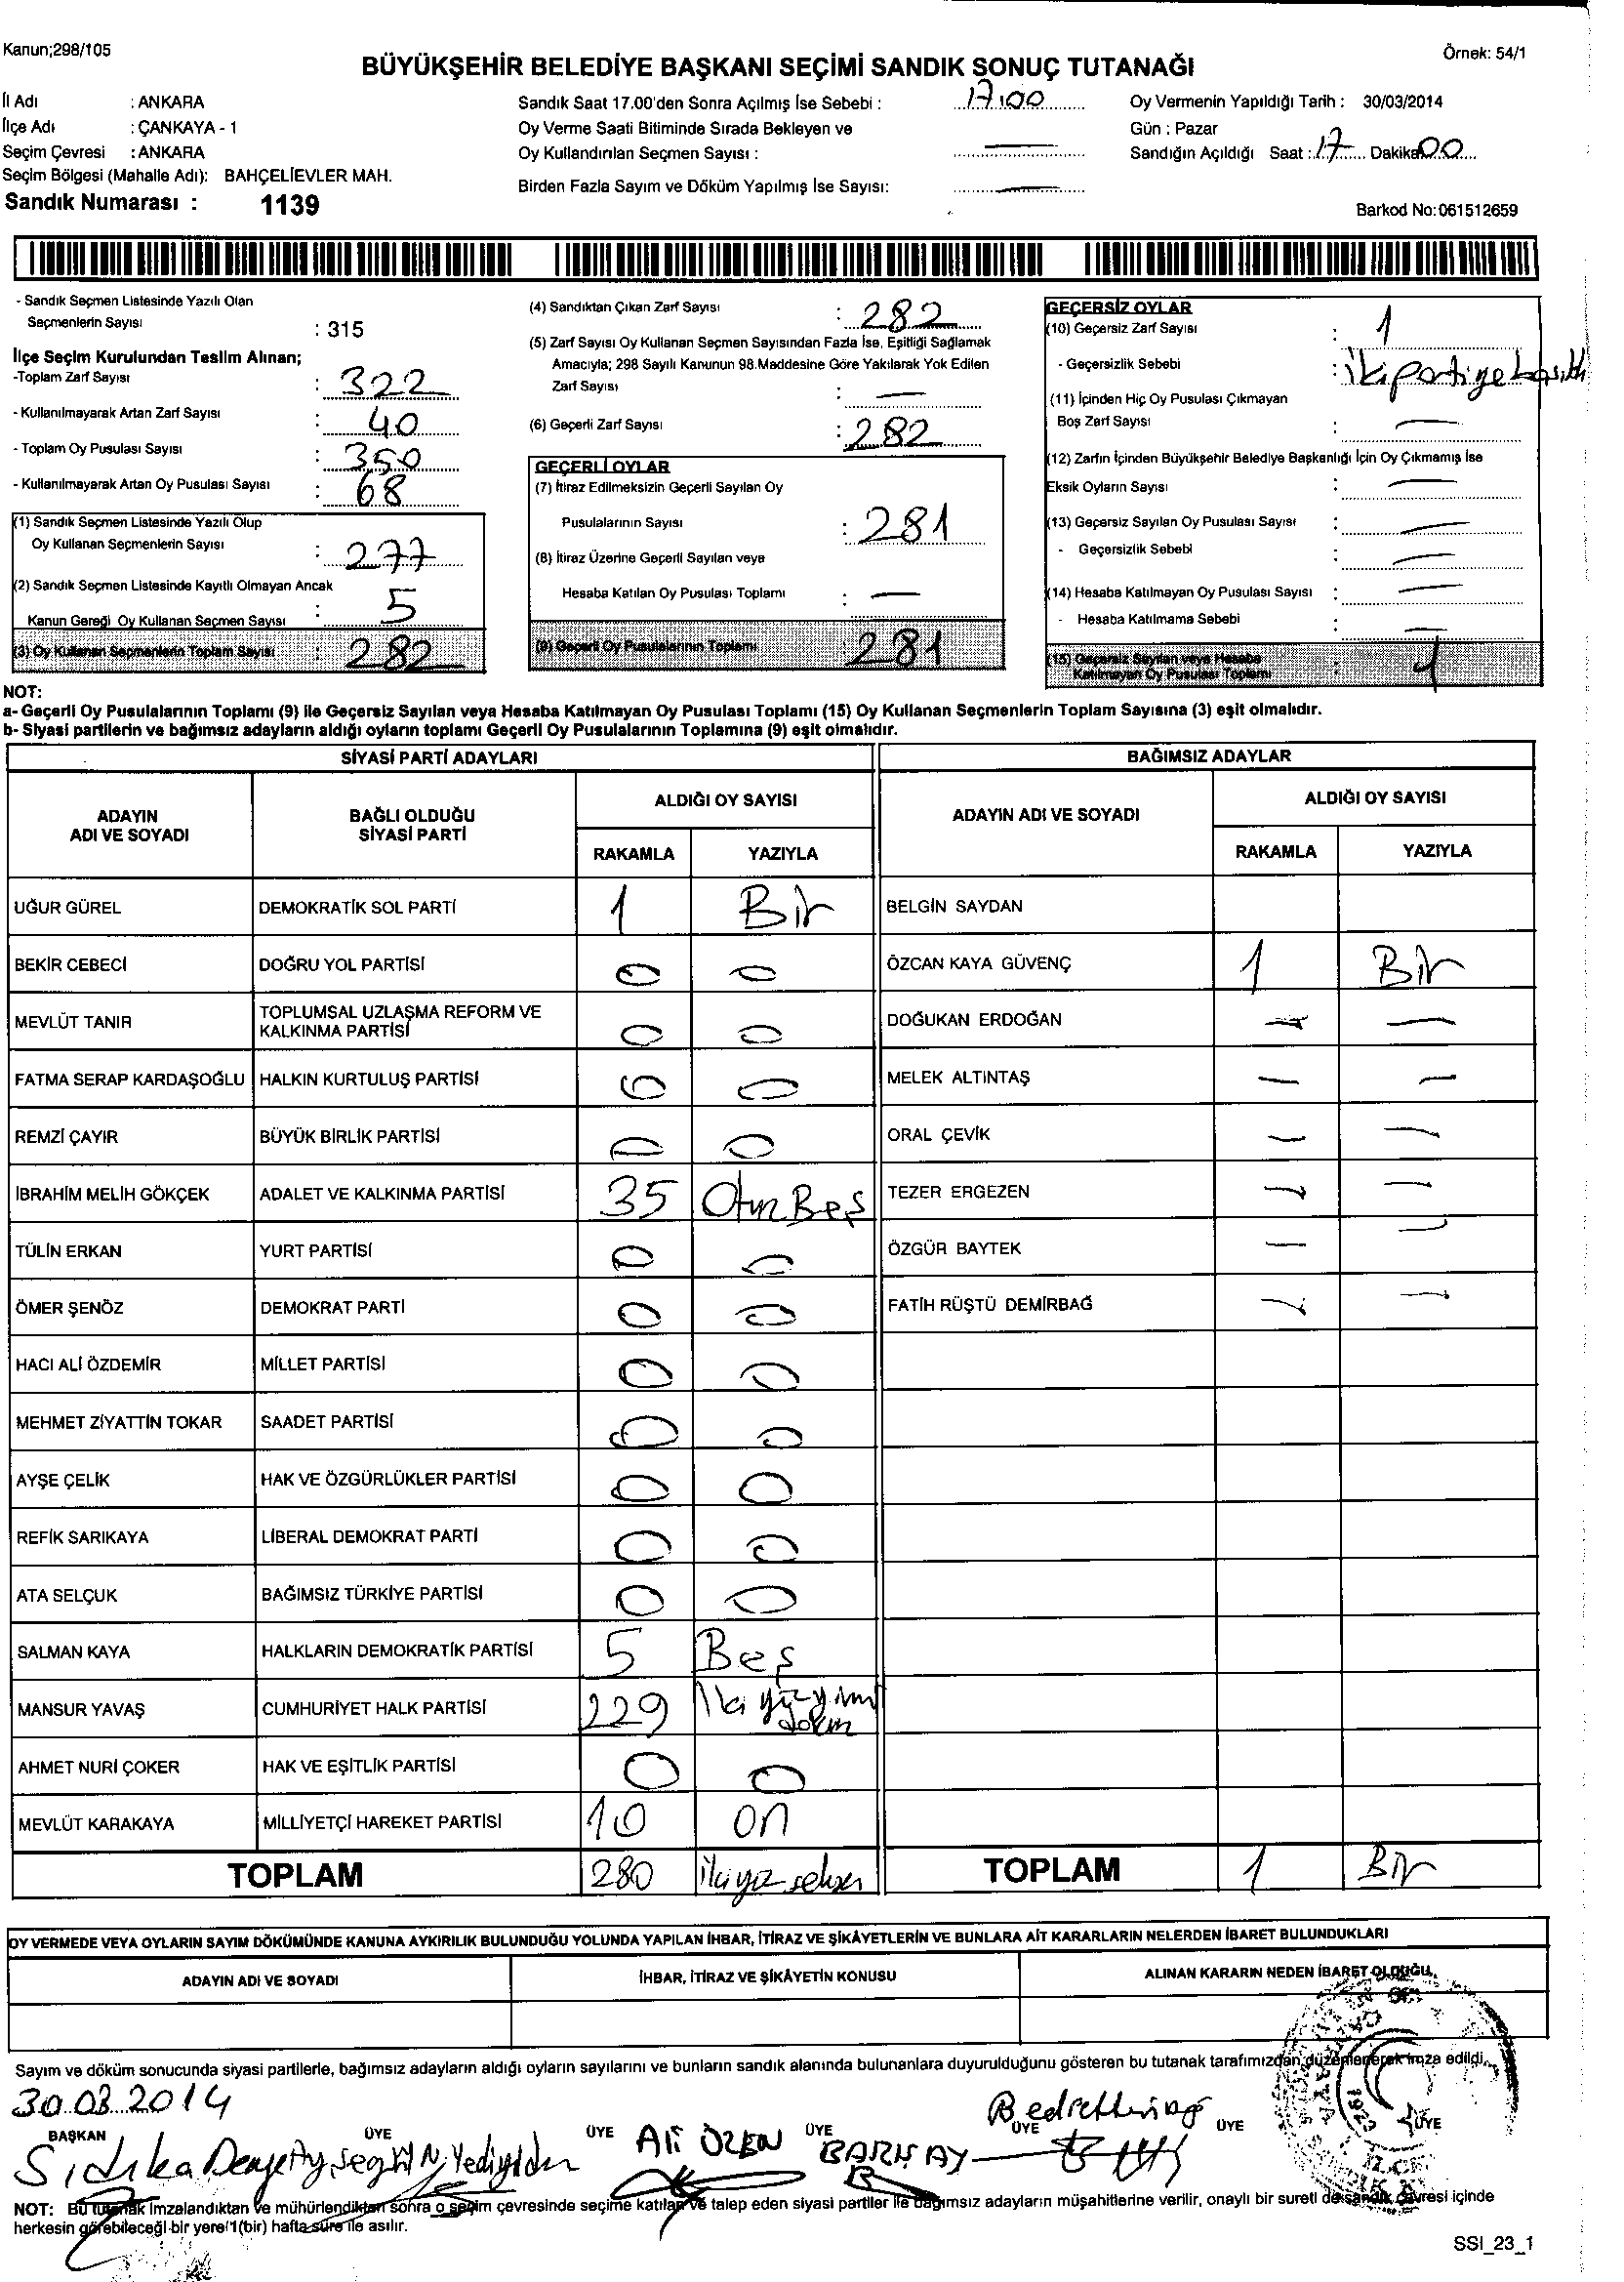 Kanun;298/105
Örnek: 54/1
BÜYÜKŞEHİR BELEDİYE BAŞKANI SEÇİMİ SANDIK SONUÇ TUTANAĞI
İl Adı : ANKARA
İlçe Adı : ÇANKAYA - 1
Seçim Çevresi : ANKARA
Seçim Bölgesi (Mahalle Adı): BAHÇELİEVLER MAH.
Sandık Numarası : 1139
Sandık Saat 17.00'den Sonra Açılmış İse Sebebi : 17:00
Oy Verme Saati Bitiminde Sırada Bekleyen ve
Oy Kullandırılan Seçmen Sayısı : —
Birden Fazla Sayım ve Döküm Yapılmış İse Sayısı: —
Oy Vermenin Yapıldığı Tarih : 30/03/2014
Gün : Pazar
Sandığın Açıldığı Saat : 17 Dakika 00
Barkod No:061512659
- Sandık Seçmen Listesinde Yazılı Olan
Seçmenlerin Sayısı : 315
İlçe Seçim Kurulundan Teslim Alınan;
-Toplam Zarf Sayısı : 322
- Kullanılmayarak Artan Zarf Sayısı : 40
- Toplam Oy Pusulası Sayısı : 350
- Kullanılmayarak Artan Oy Pusulası Sayısı : 68
(1) Sandık Seçmen Listesinde Yazılı Olup
Oy Kullanan Seçmenlerin Sayısı : 277
(2) Sandık Seçmen Listesinde Kayıtlı Olmayan Ancak
Kanun Gereği Oy Kullanan Seçmen Sayısı : 5
(3) Oy Kullanan Seçmenlerin Toplam Sayısı : 282
(4) Sandıktan Çıkan Zarf Sayısı : 282
(5) Zarf Sayısı Oy Kullanan Seçmen Sayısından Fazla İse, Eşitliği Sağlamak
Amacıyla; 298 Sayılı Kanunun 98.Maddesine Göre Yakılarak Yok Edilen
Zarf Sayısı : —
(6) Geçerli Zarf Sayısı : 282
GEÇERLİ OYLAR
(7) İtiraz Edilmeksizin Geçerli Sayılan Oy
Pusulalarının Sayısı : 281
(8) İtiraz Üzerine Geçerli Sayılan veya
Hesaba Katılan Oy Pusulası Toplamı : —
(9) Geçerli Oy Pusulalarının Toplamı 281
GEÇERSİZ OYLAR
(10) Geçersiz Zarf Sayısı : 1
- Geçersizlik Sebebi : iki partiye basıldı
(11) İçinden Hiç Oy Pusulası Çıkmayan
Boş Zarf Sayısı : —
(12) Zarfın İçinden Büyükşehir Belediye Başkanlığı İçin Oy Çıkmamış İse
Eksik Oyların Sayısı : —
(13) Geçersiz Sayılan Oy Pusulası Sayısı : —
- Geçersizlik Sebebi : —
(14) Hesaba Katılmayan Oy Pusulası Sayısı : —
- Hesaba Katılmama Sebebi : —
(15) Geçersiz Sayılan veya Hesaba
Katılmayan Oy Pusulası Toplamı : 1
NOT:
a- Geçerli Oy Pusulalarının Toplamı (9) ile Geçersiz Sayılan veya Hesaba Katılmayan Oy Pusulası Toplamı (15) Oy Kullanan Seçmenlerin Toplam Sayısına (3) eşit olmalıdır.
b- Siyasi partilerin ve bağımsız adayların aldığı oyların toplamı Geçerli Oy Pusulalarının Toplamına (9) eşit olmalıdır.
SİYASİ PARTİ ADAYLARI
ADAYIN
ADI VE SOYADI
BAĞLI OLDUĞU
SİYASİ PARTİ
ALDIĞI OY SAYISI
RAKAMLA YAZIYLA
UĞUR GÜREL DEMOKRATİK SOL PARTİ 1 Bir
BEKİR CEBECİ DOĞRU YOL PARTİSİ 0 0
MEVLÜT TANIR TOPLUMSAL UZLAŞMA REFORM VE
KALKINMA PARTİSİ 0 0
FATMA SERAP KARDAŞOĞLU HALKIN KURTULUŞ PARTİSİ 0 0
REMZİ ÇAYIR BÜYÜK BİRLİK PARTİSİ 0 0
İBRAHİM MELİH GÖKÇEK ADALET VE KALKINMA PARTİSİ 35 OtuzBeş
TÜLİN ERKAN YURT PARTİSİ 0 0
ÖMER ŞENÖZ DEMOKRAT PARTİ 0 0
HACI ALİ ÖZDEMİR MİLLET PARTİSİ 0 0
MEHMET ZİYATTİN TOKAR SAADET PARTİSİ 0 0
AYŞE ÇELİK HAK VE ÖZGÜRLÜKLER PARTİSİ 0 0
REFİK SARIKAYA LİBERAL DEMOKRAT PARTİ 0 0
ATA SELÇUK BAĞIMSIZ TÜRKİYE PARTİSİ 0 0
SALMAN KAYA HALKLARIN DEMOKRATİK PARTİSİ 5 Beş
MANSUR YAVAŞ CUMHURİYET HALK PARTİSİ 229 İkiyüzyirmi
dokuz
AHMET NURİ ÇOKER HAK VE EŞİTLİK PARTİSİ 0 0
MEVLÜT KARAKAYA MİLLİYETÇİ HAREKET PARTİSİ 10 on
TOPLAM 280 ikiyüz seksen
BAĞIMSIZ ADAYLAR
ADAYIN ADI VE SOYADI
ALDIĞI OY SAYISI
RAKAMLA YAZIYLA
BELGİN SAYDAN
ÖZCAN KAYA GÜVENÇ 1 Bir
DOĞUKAN ERDOĞAN — —
MELEK ALTINTAŞ — —
ORAL ÇEVİK — —
TEZER ERGEZEN — —
ÖZGÜR BAYTEK — —
FATİH RÜŞTÜ DEMİRBAĞ — —
TOPLAM 1 Bir
OY VERMEDE VEYA OYLARIN SAYIM DÖKÜMÜNDE KANUNA AYKIRILIK BULUNDUĞU YOLUNDA YAPILAN İHBAR, İTİRAZ VE ŞİKÂYETLERİN VE BUNLARA AİT KARARLARIN NELERDEN İBARET BULUNDUKLARI
ADAYIN ADI VE SOYADI İHBAR, İTİRAZ VE ŞİKÂYETİN KONUSU ALINAN KARARIN NEDEN İBARET OLDUĞU
Sayım ve döküm sonucunda siyasi partilerle, bağımsız adayların aldığı oyların sayılarını ve bunların sandık alanında bulunanlara duyurulduğunu gösteren bu tutanak tarafımızdan düzenlenerek imza edildi.
30.03.2014
BAŞKAN ÜYE ÜYE ÜYE ÜYE ÜYE ÜYE
Sıdıka
ALİ ÖZEN
BARIŞ AY
NOT: Bu tutanak imzalandıktan ve mühürlendikten sonra o seçim çevresinde seçime katılan ve talep eden siyasi partiler ile bağımsız adayların müşahitlerine verilir, onaylı bir sureti de sandık çevresi içinde
herkesin görebileceği bir yere 1(bir) hafta süre ile asılır.
SSI_23_1